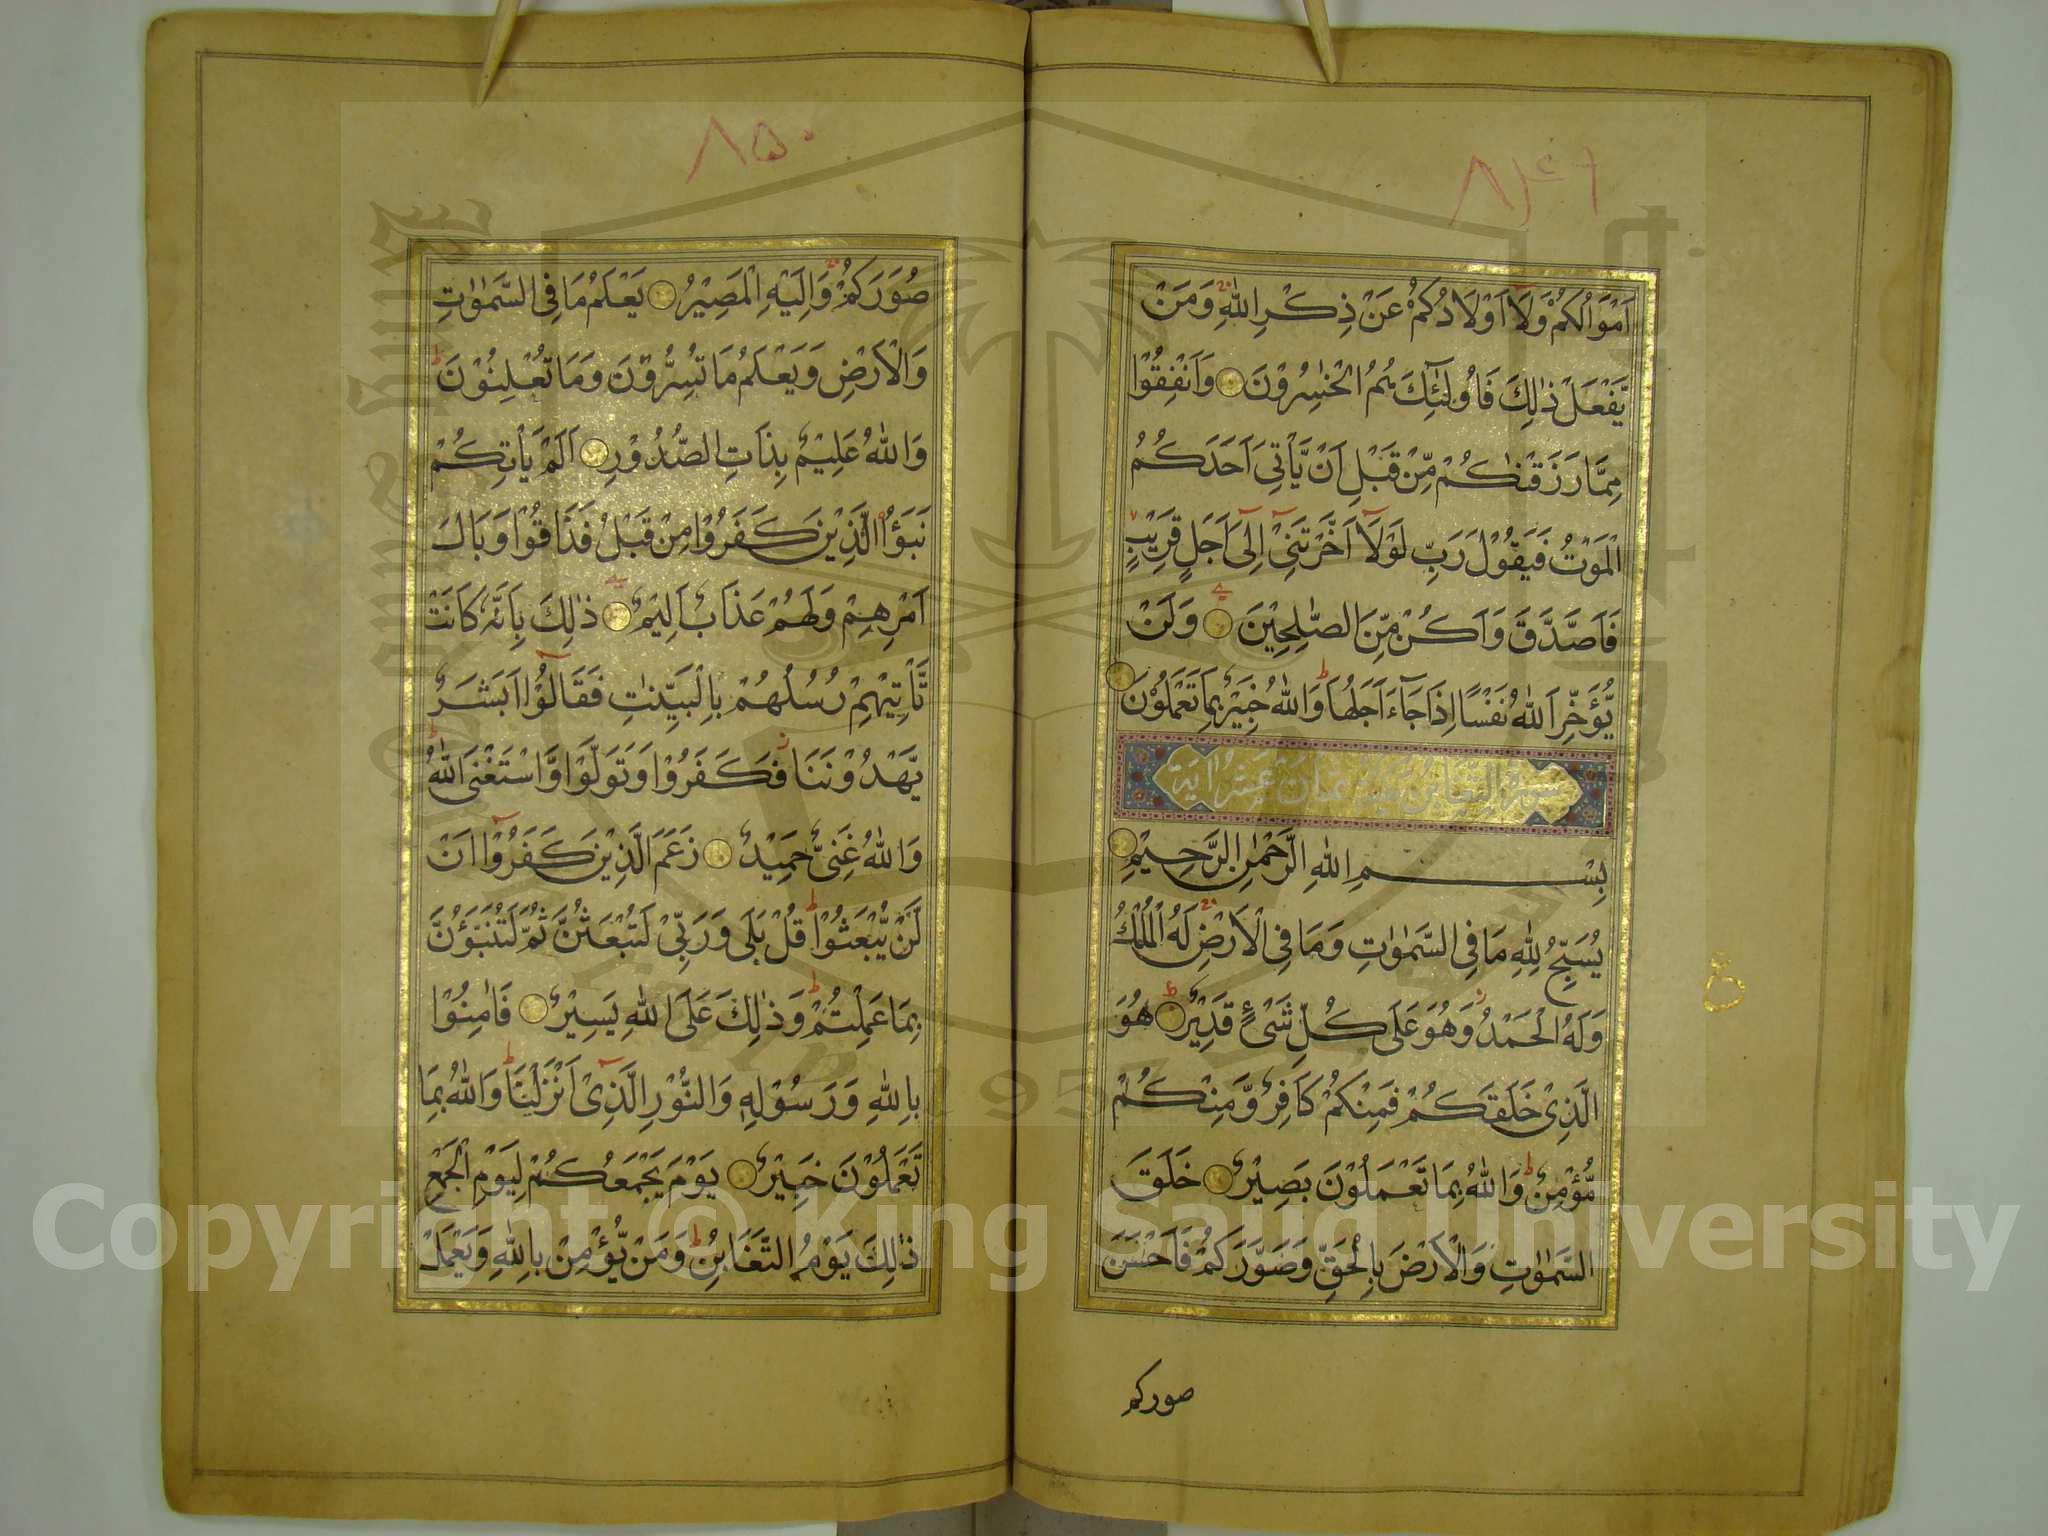 ٨٤٩
اَمْوَالُكُمْ وَلَا اَوْلَادُكُمْ عَنْ ذِكْرِ اللّٰهِ وَمَنْ
يَّفْعَلْ ذٰلِكَ فَاُولٰٓئِكَ هُمُ الْخٰسِرُوْنَ وَاَنْفِقُوْا
مِمَّا رَزَقْنٰكُمْ مِّنْ قَبْلِ اَنْ يَّاْتِيَ اَحَدَكُمُ
الْمَوْتُ فَيَقُوْلَ رَبِّ لَوْلَآ اَخَّرْتَنِيْٓ اِلٰٓى اَجَلٍ قَرِيْبٍ
فَاَصَّدَّقَ وَاَكُنْ مِّنَ الصّٰلِحِيْنَ وَلَنْ
يُّؤَخِّرَ اللّٰهُ نَفْسًا اِذَا جَآءَ اَجَلُهَا وَاللّٰهُ خَبِيْرٌ بِمَا تَعْمَلُوْنَ
سورة التغابن ثمان عشر اية
بِسْمِ اللّٰهِ الرَّحْمٰنِ الرَّحِيْمِ
يُسَبِّحُ لِلّٰهِ مَا فِي السَّمٰوٰتِ وَمَا فِي الْاَرْضِ لَهُ الْمُلْكُ
وَلَهُ الْحَمْدُ وَهُوَ عَلٰى كُلِّ شَيْءٍ قَدِيْرٌ هُوَ
الَّذِيْ خَلَقَكُمْ فَمِنْكُمْ كَافِرٌ وَّمِنْكُمْ
مُّؤْمِنٌ وَاللّٰهُ بِمَا تَعْمَلُوْنَ بَصِيْرٌ خَلَقَ
السَّمٰوٰتِ وَالْاَرْضَ بِالْحَقِّ وَصَوَّرَكُمْ فَاَحْسَنَ
صوركم
٨٥٠
صُوَرَكُمْ وَاِلَيْهِ الْمَصِيْرُ يَعْلَمُ مَا فِي السَّمٰوٰتِ
وَالْاَرْضِ وَيَعْلَمُ مَا تُسِرُّوْنَ وَمَا تُعْلِنُوْنَ
وَاللّٰهُ عَلِيْمٌ بِذَاتِ الصُّدُوْرِ اَلَمْ يَاْتِكُمْ
نَبَؤُا الَّذِيْنَ كَفَرُوْا مِنْ قَبْلُ فَذَاقُوْا وَبَالَ
اَمْرِهِمْ وَلَهُمْ عَذَابٌ اَلِيْمٌ ذٰلِكَ بِاَنَّهٗ كَانَتْ
تَّاْتِيْهِمْ رُسُلُهُمْ بِالْبَيِّنٰتِ فَقَالُوْٓا اَبَشَرٌ
يَّهْدُوْنَنَا فَكَفَرُوْا وَتَوَلَّوْا وَّاسْتَغْنَى اللّٰهُ
وَاللّٰهُ غَنِيٌّ حَمِيْدٌ زَعَمَ الَّذِيْنَ كَفَرُوْٓا اَنْ
لَّنْ يُّبْعَثُوْا قُلْ بَلٰى وَرَبِّيْ لَتُبْعَثُنَّ ثُمَّ لَتُنَبَّؤُنَّ
بِمَا عَمِلْتُمْ وَذٰلِكَ عَلَى اللّٰهِ يَسِيْرٌ فَاٰمِنُوْا
بِاللّٰهِ وَرَسُوْلِهٖ وَالنُّوْرِ الَّذِيْٓ اَنْزَلْنَا وَاللّٰهُ بِمَا
تَعْمَلُوْنَ خَبِيْرٌ يَوْمَ يَجْمَعُكُمْ لِيَوْمِ الْجَمْعِ
ذٰلِكَ يَوْمُ التَّغَابُنِ وَمَنْ يُّؤْمِنْ بِاللّٰهِ وَيَعْمَلْ
Copyright © King Saud University